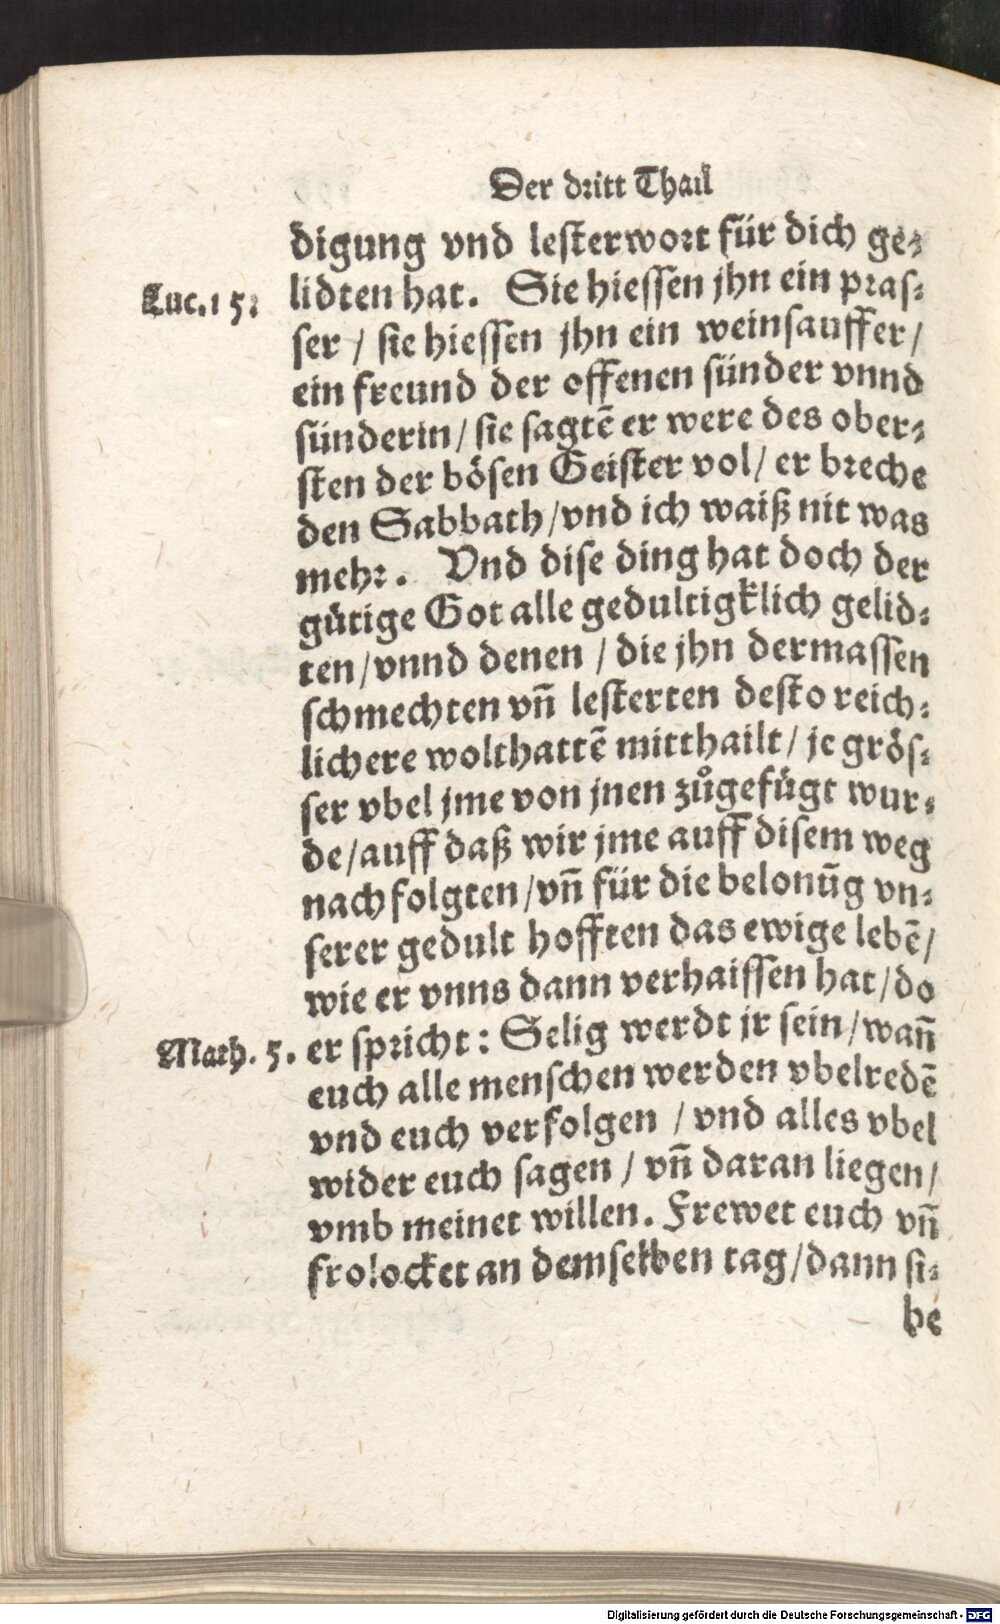 Der dritt Thail
digung vnd lesterwort für dich ge-
Luc. 15. lidten hat. Sie hiessen jhn ein pras-
ser / sie hiessen jhn ein weinsauffer /
ein freund der offenen sünder vnnd
sünderin / sie sagtẽ er were des ober-
sten der bösen Geister vol / er breche
den Sabbath / vnd ich waiß nit was
mehr. Vnd dise ding hat doch der
gütige Got alle gedultigklich gelid-
ten / vnnd denen / die jhn dermassen
schmechten vñ lesterten desto reich-
lichere wolthattẽ mitthailt / je grös-
ser vbel jme von jnen zůgefügt wur-
de / auff daß wir jme auff disem weg
nachfolgten / vñ für die belonũg vn-
serer gedult hofften das ewige lebẽ /
wie er vnns dann verhaissen hat / do
Math. 5. er spricht: Selig werdt jr sein / wañ
euch alle menschen werden vbelredẽ
vnd euch verfolgen / vnd alles vbel
wider euch sagen / vñ daran liegen /
vmb meinet willen. Frewet euch vñ
frolocket an demselben tag / dann si-
he
Digitalisierung gefördert durch die Deutsche Forschungsgemeinschaft - DFG